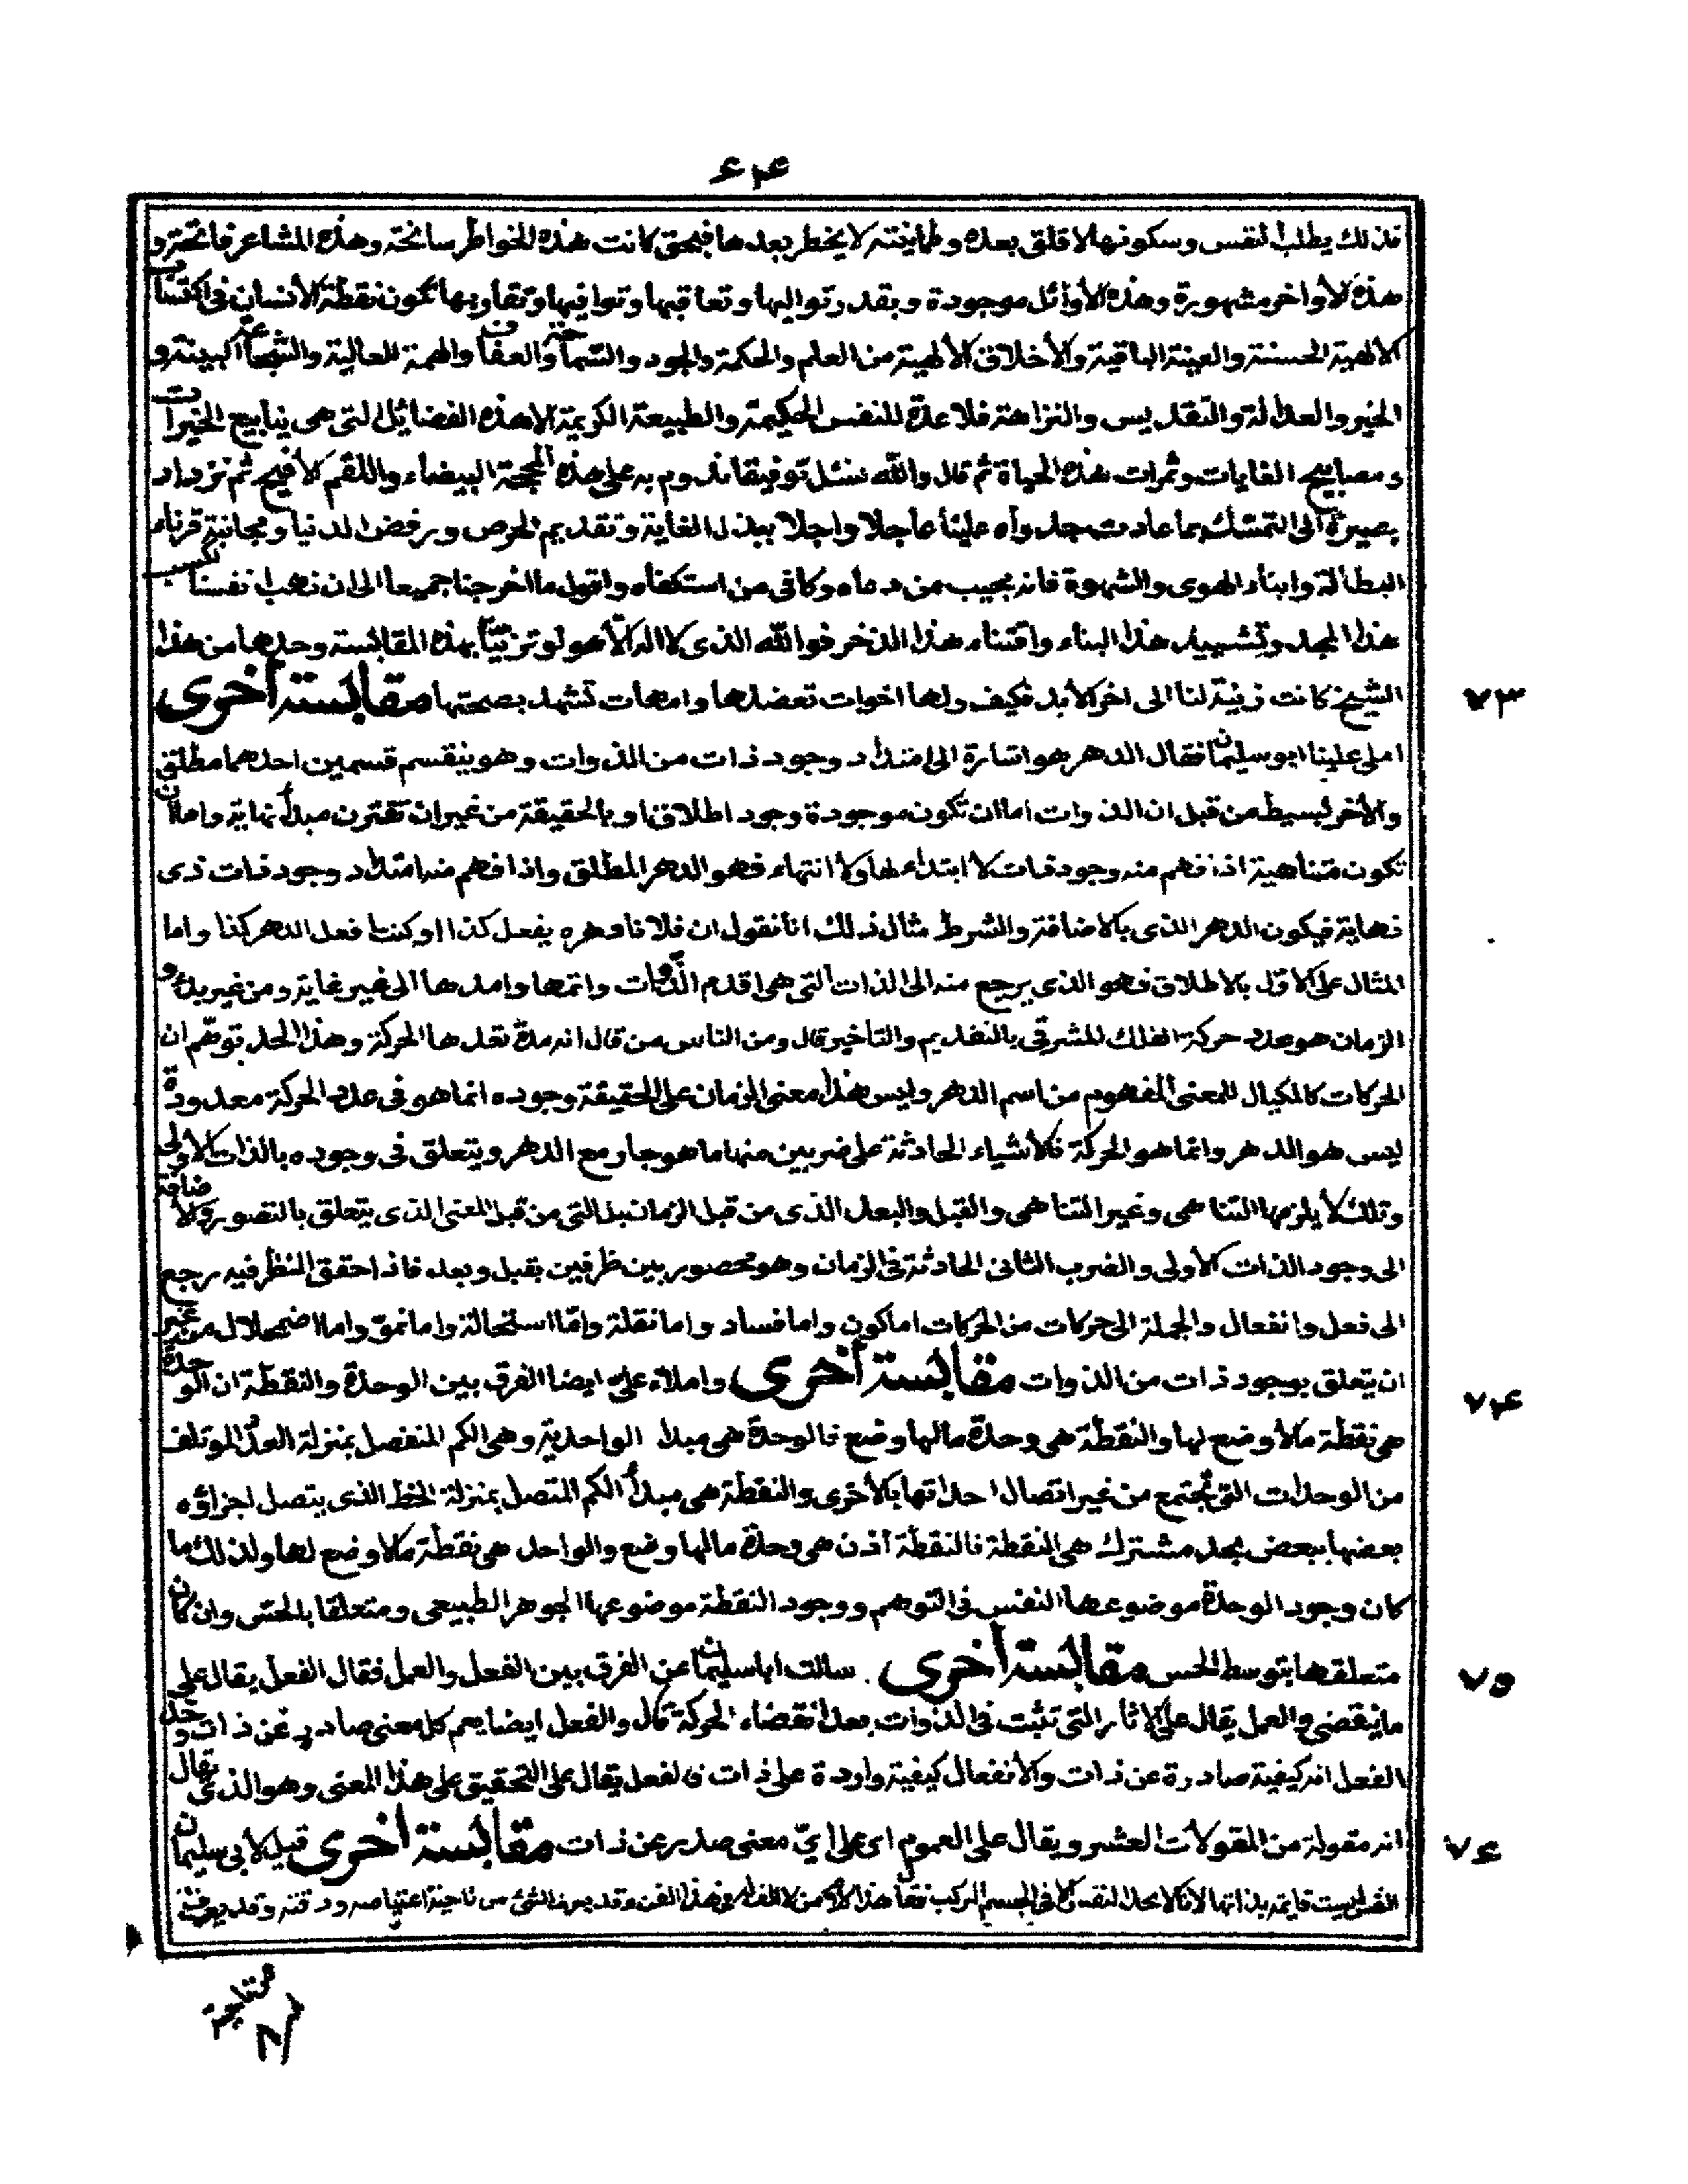 ۶۴
فذلك يطلب النفس وسكونها لا قلق بعده وطمانينته لا يخطر بعدها فبحق كانت هذه الخواطر سانحة وهذه المشاعر فاتحة و
هذه الأواخر مشهورة وهذه الأوائل موجودة وبقدر تواليها وتعاقبها وتوافيها وتقاربها تكون نقطة الأنسان في اكتساب
الألهية الحسنة والعينة الباقية والأخلاق الألهية من العلم والحكمة والجود والسماحة والعفاف والهمة العالية والشجاعة البينة و
الخير والعدالة والتقديس والنزاهة فلا عدة للنفس الحكيمة والطبيعة الكريمة الا هذه الفضائل التي هي ينابيع الخيرات
و مصابيح الغايات وثمرات هذه الحياة ثم قال والله نسئل توفيقا ندوم به على هذه المحجة البيضاء واللقم الأفيح ثم نزداد
بصيرة الى التمسك بما عادت جدواه علينا عاجلا واجلا ببذل الغاية وتقديم الحرص ورفض الدنيا ومجانبة قرناء
البطالة وابناء الهوى والشهوة فانه مجيب من دعاه وكافي من استكفاه واقول ما اخرجنا جميعا الى ان نهب انفسنا لكسب
هذا المجد وتشييد هذا البناء واقتناء هذا الذخر فوالله الذي لا اله الا هو لو تزيّنّا بهذه المقابسة وحدها من هذا
الشيخ كانت زينة لنا الى اخر الأبد فكيف ولها اخوات تعضدها وامهات تشهد بصحتها مقابسة أخرى ۷۳
املى علينا ابو سليمان فقال الدهر هو اشارة الى امتداد وجود ذات من الذوات وهو ينقسم قسمين احدهما مطلق
والأخر بسيط من قبل ان الذوات اما ان تكون موجودة وجود اطلاقا او بالحقيقة من غير ان تقترن مبدأ نهاية واما ان
تكون متناهية اذا فهم منه وجود ذات لا ابتداء لها ولا انتهاء فهو الدهر المطلق واذا فهم منه امتداد وجود ذات ذي
نهاية فيكون الدهر الذي بالاضافة والشرط مثال ذلك انا نقول ان فلانا دهره يفعل كذا او كنت افعل الدهر كذا واما
المثال على الاوّل بالاطلاق فهو الذي يرجع منه الى الذات التي هي اقدم الذّوات واتمها وامدها الى غير غاية ومن غير بدئ و
الزمان هو عدد حركة الفلك المشرقي بالتقديم والتأخير قال ومن الناس من قال انه مدة تعدها الحركة وهذا الحد توهّم ان
الحركات كالمكيال للمعنى المفهوم من اسم الدهر وليس هذا معنى الزمان على الحقيقة وجوده انما هو في عدد الحركة معدودة
ليس هو الدهر وانما هو الحركة فالأشياء الحادثة على ضربين منها ما هو جار مع الدهر ويتعلق في وجوده بالذات الأولى
وتلك لا يلزمها التناهي وغير التناهي والقبل والبعد الذي من قبل الزمان بل التي من قبل المعنى الذي يتعلق بالتصور والاضافة
الى وجود الذات الأولى والضرب الثاني الحادثة في الزمان وهو محصور بين طرفين بقبل وبعد فاذا حقق النظر فيه رجع
الى فعل وانفعال والجملة الى حركات من الحركات اما كون واما فساد واما نقلة وامّا استحالة واما نموّ واما اضمحلال من غير
ان يتعلق بوجود ذات من الذوات مقابسة أخرى واملاء علي ايضا الفرق بين الوحدة والنقطة ان الوحدة ۷۴
هي نقطة ما لا وضع لها والنقطة هي وحدة ما لها وضع فالوحدة هي مبدا الواحدية وهي الكم المنفصل بمنزلة العدد المؤتلف
من الوحدات التي تجتمع من غير اتصال احداتها بالأخرى والنقطة هي مبدأ الكم المتصل بمنزلة الخط الذي يتصل اجزاؤه
بعضها ببعض بحد مشترك هي النقطة فالنقطة أذن هي وحدة ما لها وضع والواحد هي نقطة ما لا وضع لها ولذلك ما
كان وجود الوحدة موضوعها النفس في التوهم ووجود النقطة موضوعها الجوهر الطبيعي ومتعلقا بالحس وان كان
متعلقها بتوسط الحس مقابسة أخرى . سالت ابا سليمان عن الفرق بين الفعل والعمل فقال الفعل يقال على ۷۵
ما ينقضي والعمل يقال على الاثار التي تثبت في الذوات بعد انقضاء الحركة قال والفعل ايضا يعم كل معنى صادر عن ذات وحد
الفعل انه كيفية صادرة عن ذات والأنفعال كيفية واردة على ذات فالفعل يقال على التحقيق على هذا المعنى وهو الذي يقال
انه مقولة من المقولات العشر ويقال على العموم اى على ايّ معنى صدر عن ذات مقابسة أخرى قيل لأبي سليمان ۷۶
النفس ليست قايمة بذاتها لانا لا نجد النفس الا في الجسم المركب فقال هذا من في هذا الفن وقد الشئ من ناحية اعتياصه ودقته وقد